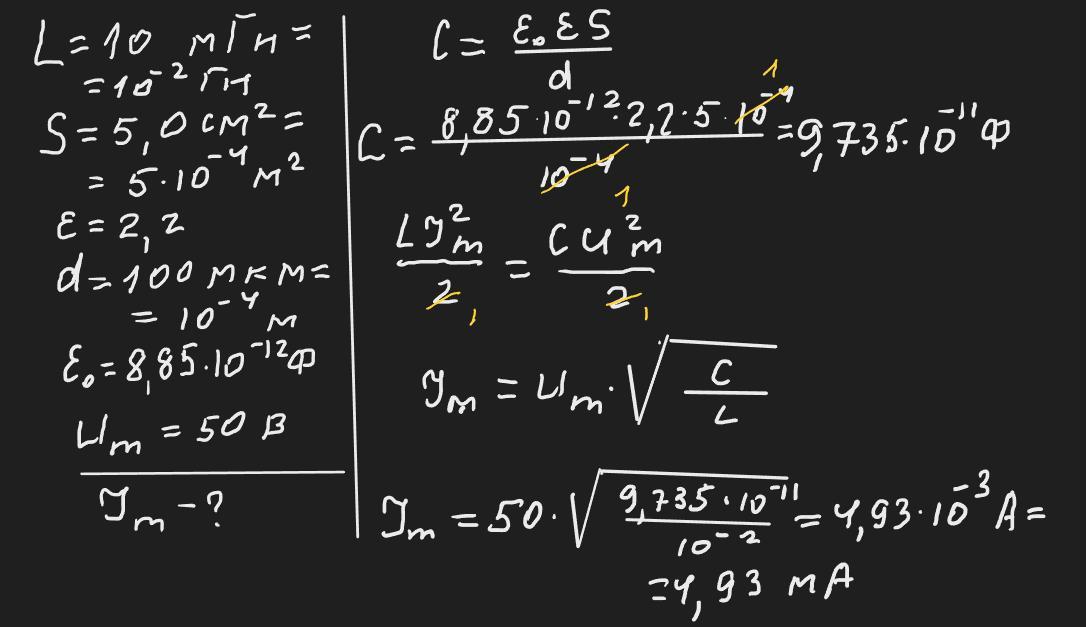 L = 10 мГн =
= 10⁻² Гн
S = 5,0 см² =
= 5·10⁻⁴ м²
ε = 2,2
d = 100 мкм =
= 10⁻⁴ м
ε₀ = 8,85·10⁻¹² Ф
Um = 50 В
Im - ?
C = ε₀ ε S / d
1
C = 8,85·10⁻¹²·2,2·5·10⁻⁴ / 10⁻⁴ = 9,735·10⁻¹¹ Ф
1
LIm² / 2 = CUm² / 2
1 1
Im = Um · √(C / L)
Im = 50 · √(9,735·10⁻¹¹ / 10⁻²) = 4,93·10⁻³ A =
= 4,93 мA